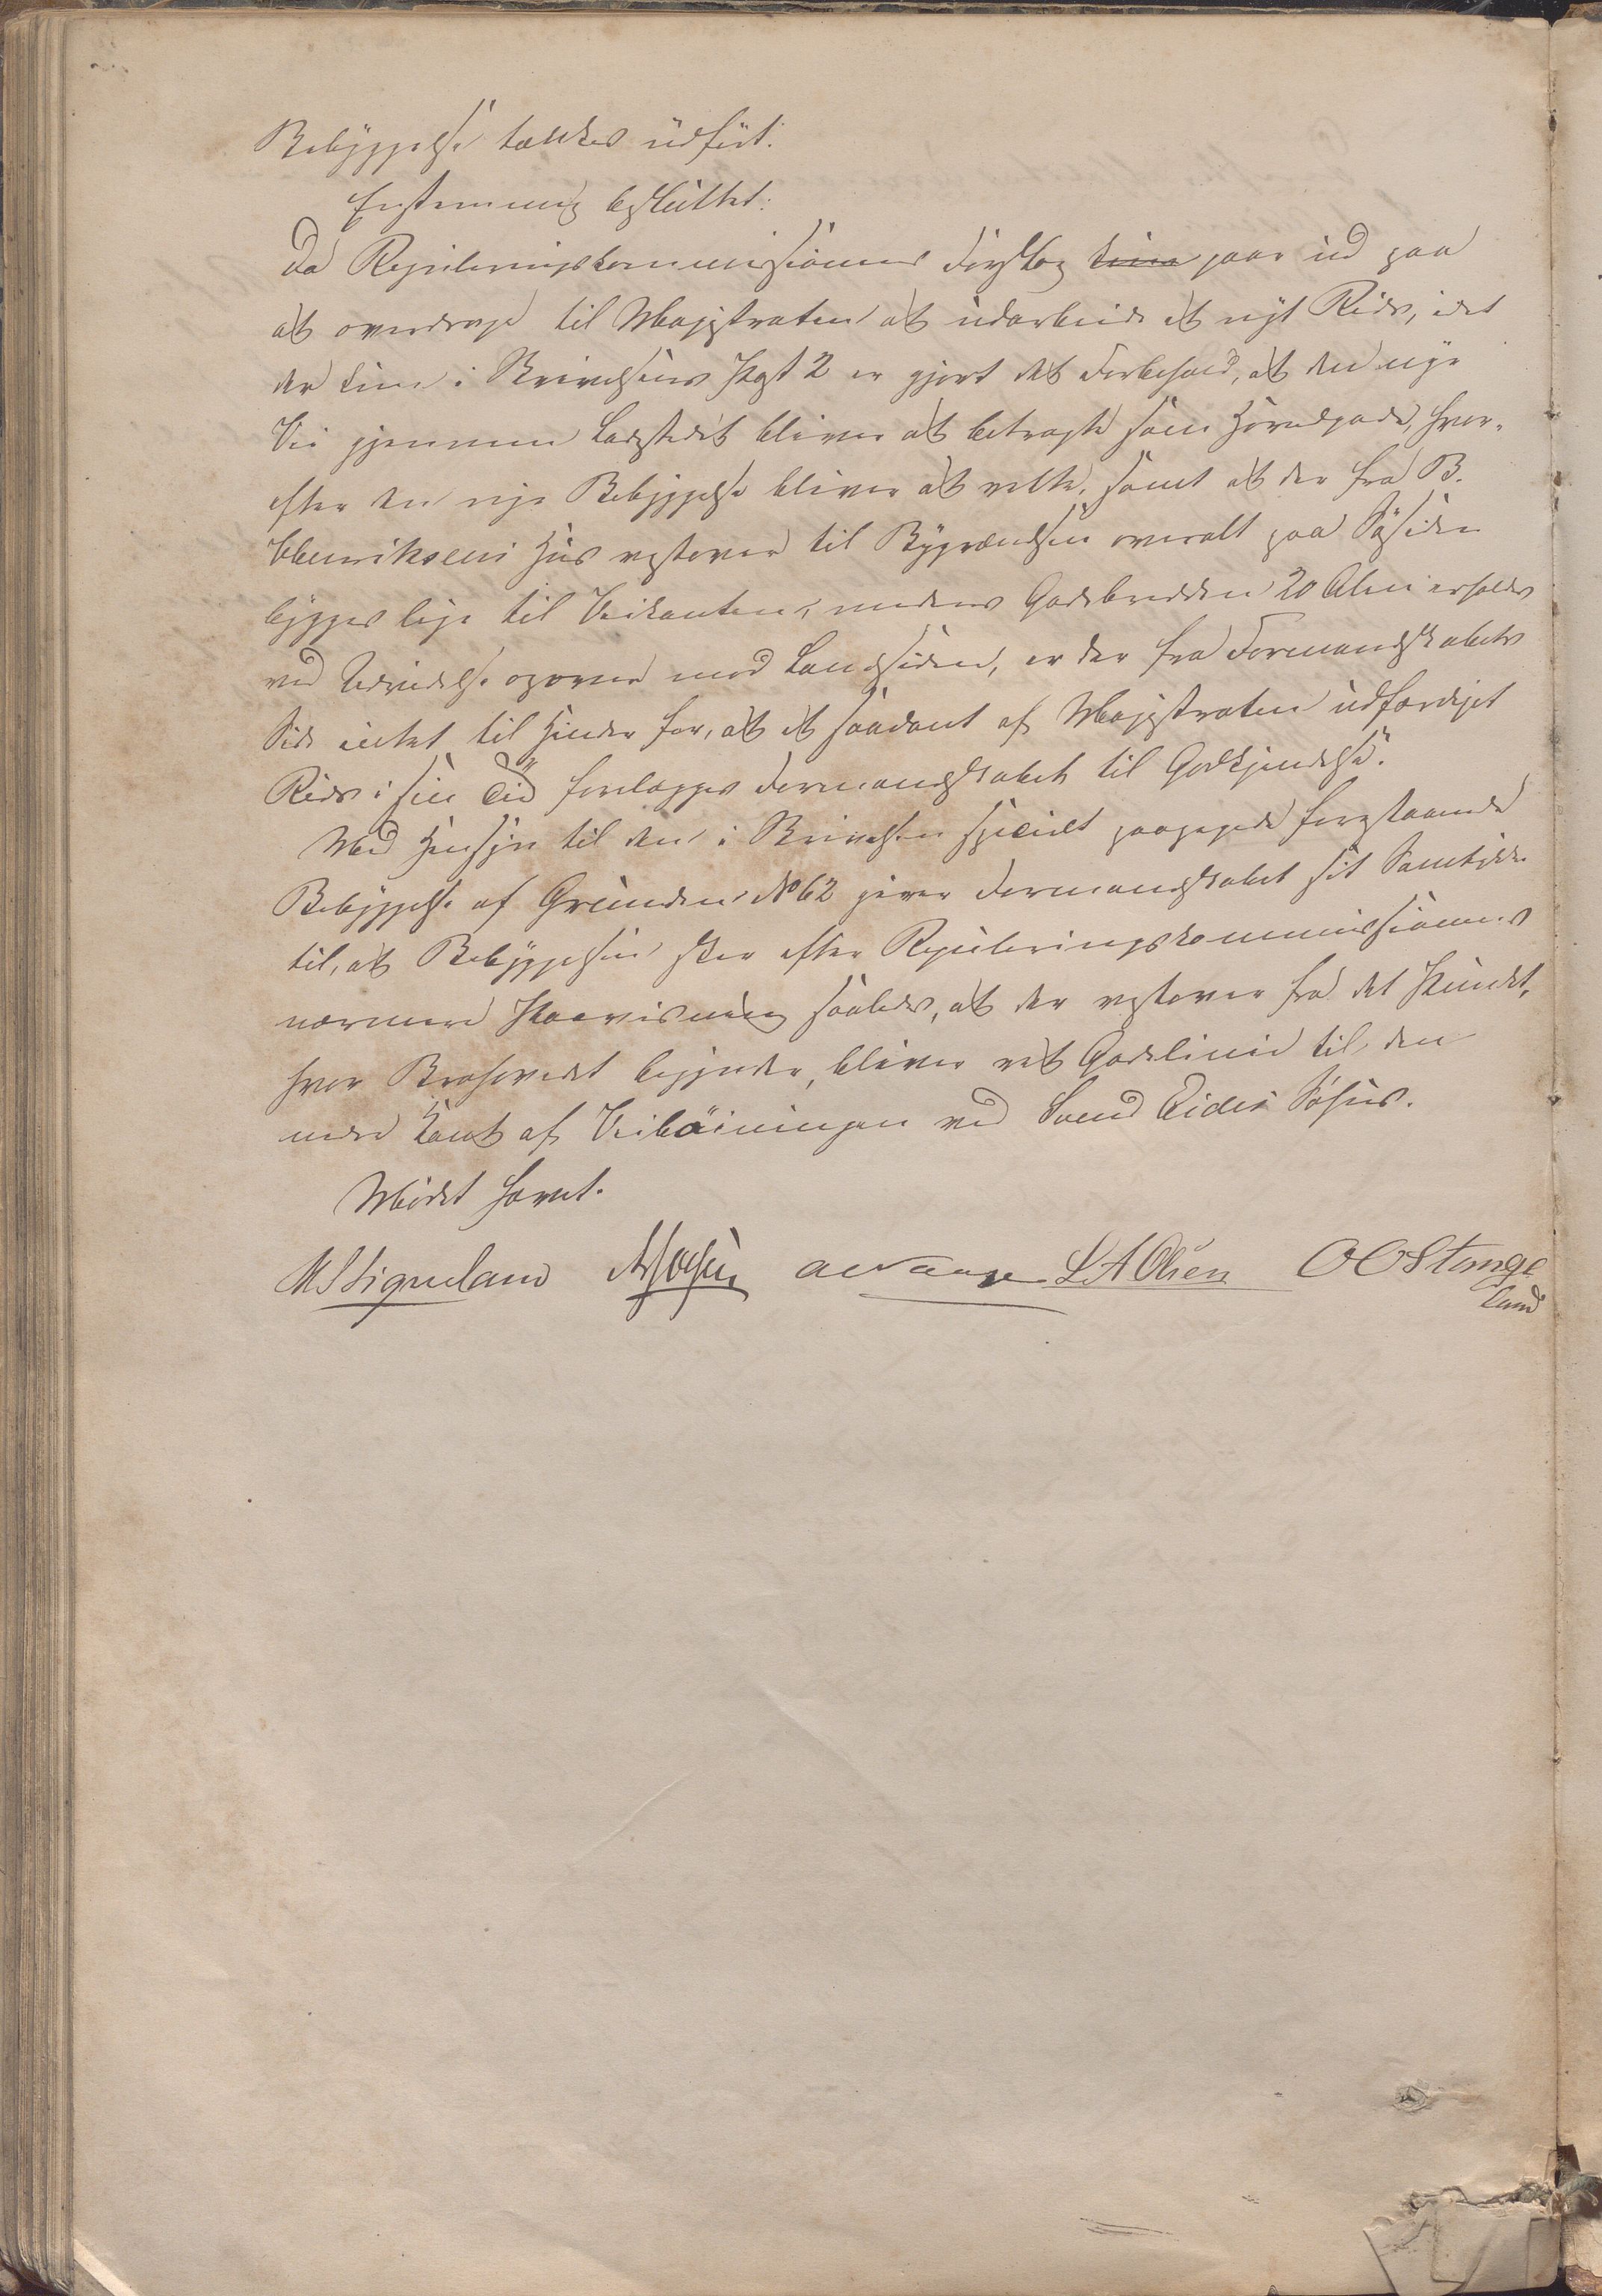 Bebyggelse tænkes udført.
Enstemmig besluttet:
Da Reguleringskommissionens Forslag kun gaar ud paa
at overdrage til Magistraten at udarbeide et nyt Rids, idet
der kun i Skrivelsens Pkt 2 er gjort det Forbehold, at den nye
Vei gjennem Ladestedet bliver at betragte som Hovedgade, hvor-
efter den nye Bebyggelse bliver at rette, samt at der fra B.
Henriksens Hus vestover til Bygrændsen overalt paa Søsiden
bygges lige til Veikanten, medens Gadebredden 20 Alen erholdes
ved Udvidelse opover mod Landsiden, er der fra Formandskabets
Side intet til Hinder for, at et saadant af Magistraten udfærdiget
Rids i sin Tid forelægges Formandskabet til Godkjendelse.
Med Hensyn til den i Skrivelsen specielt paapegede forestaaende
Bebyggelse af Grunden No 62 giver Formandskabet sit Samtykke
til, at Bebyggelsen sker efter Reguleringskommissionens
nærmere Paavisning saaledes, at der vestover fra det Punkt,
hvor Brohovedet begynder, bliver ret Gadelinie til den
nedre Kant af Veibøiningen ved Svend Eides Søhus.
Mødet hævet.
M S Ligueland L A Olsen O O Stange
land